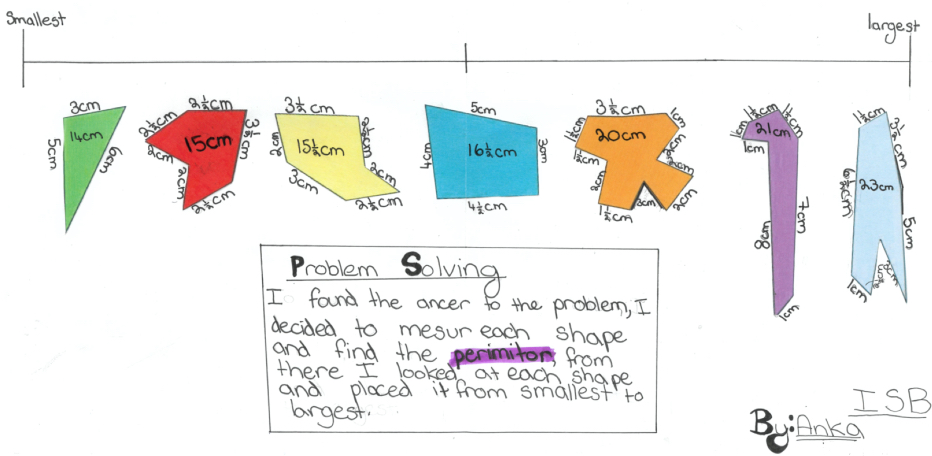 Smallest
largest
3cm
5cm
14cm
6cm
2½cm
2½cm
15cm
3½cm
2cm
2cm
2½cm
3½cm
2cm
15½cm
2½cm
2cm
3cm
2½cm
5cm
4cm
16½cm
3cm
4½cm
3½cm
1cm
1½cm
20cm
1½cm
2cm
2cm
1½cm
3cm
2cm
1½cm
1½cm
1cm
21cm
1cm
8cm
7cm
1cm
1½cm
3½cm
23cm
6½cm
5cm
1cm
Problem Solving
I found the ancer to the problem, I
decided to mesur each shape
and find the perimitor, from
there I looked at each shape
and placed it from smallest to
largest.
ISB
By: Anka